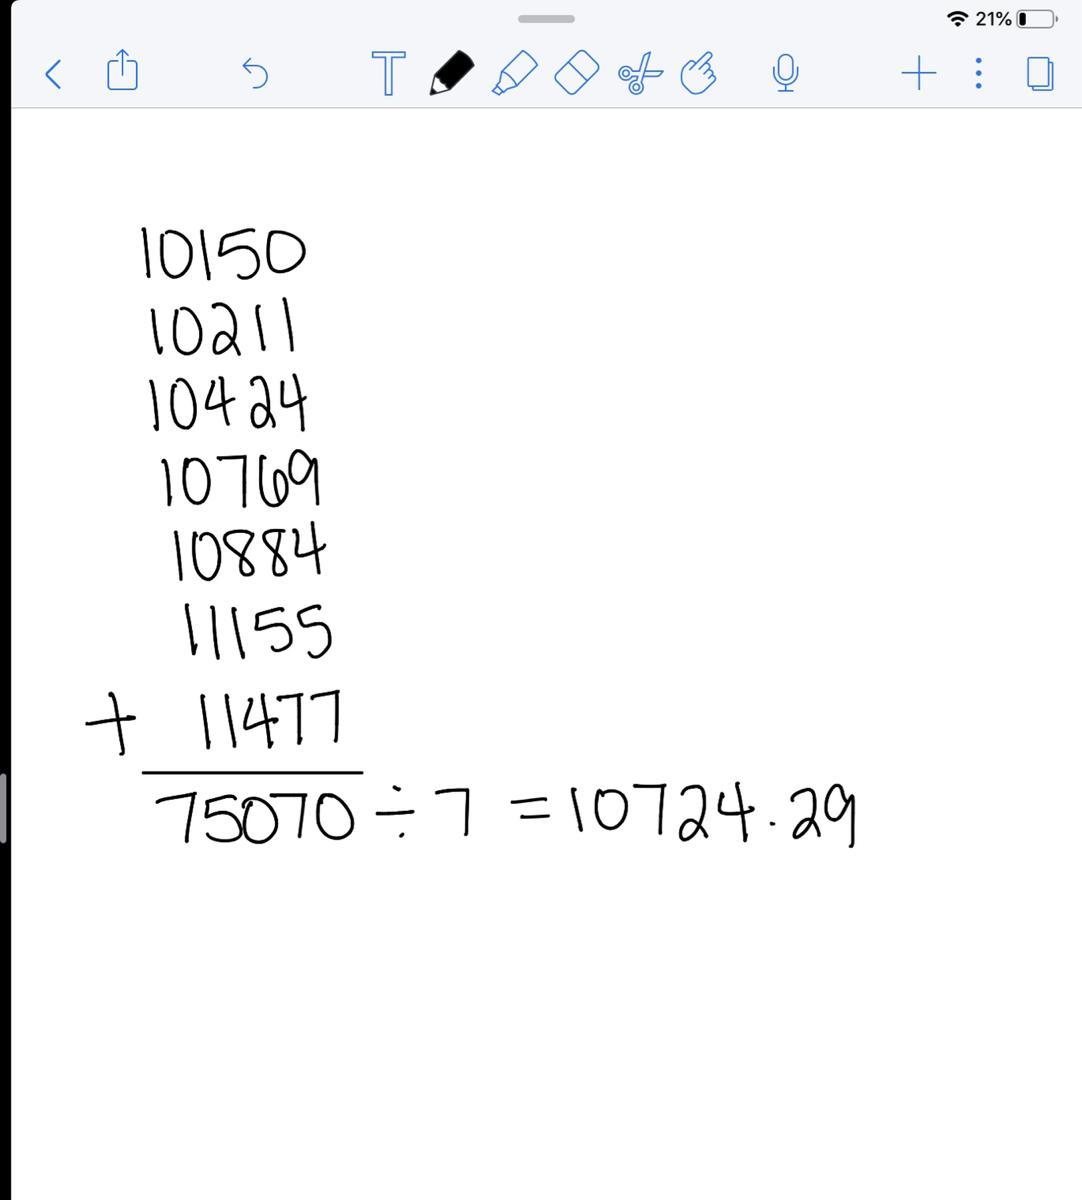 21%
T
10150
10211
10424
10769
10884
11155
+ 11477
75070 ÷ 7 = 10724.29